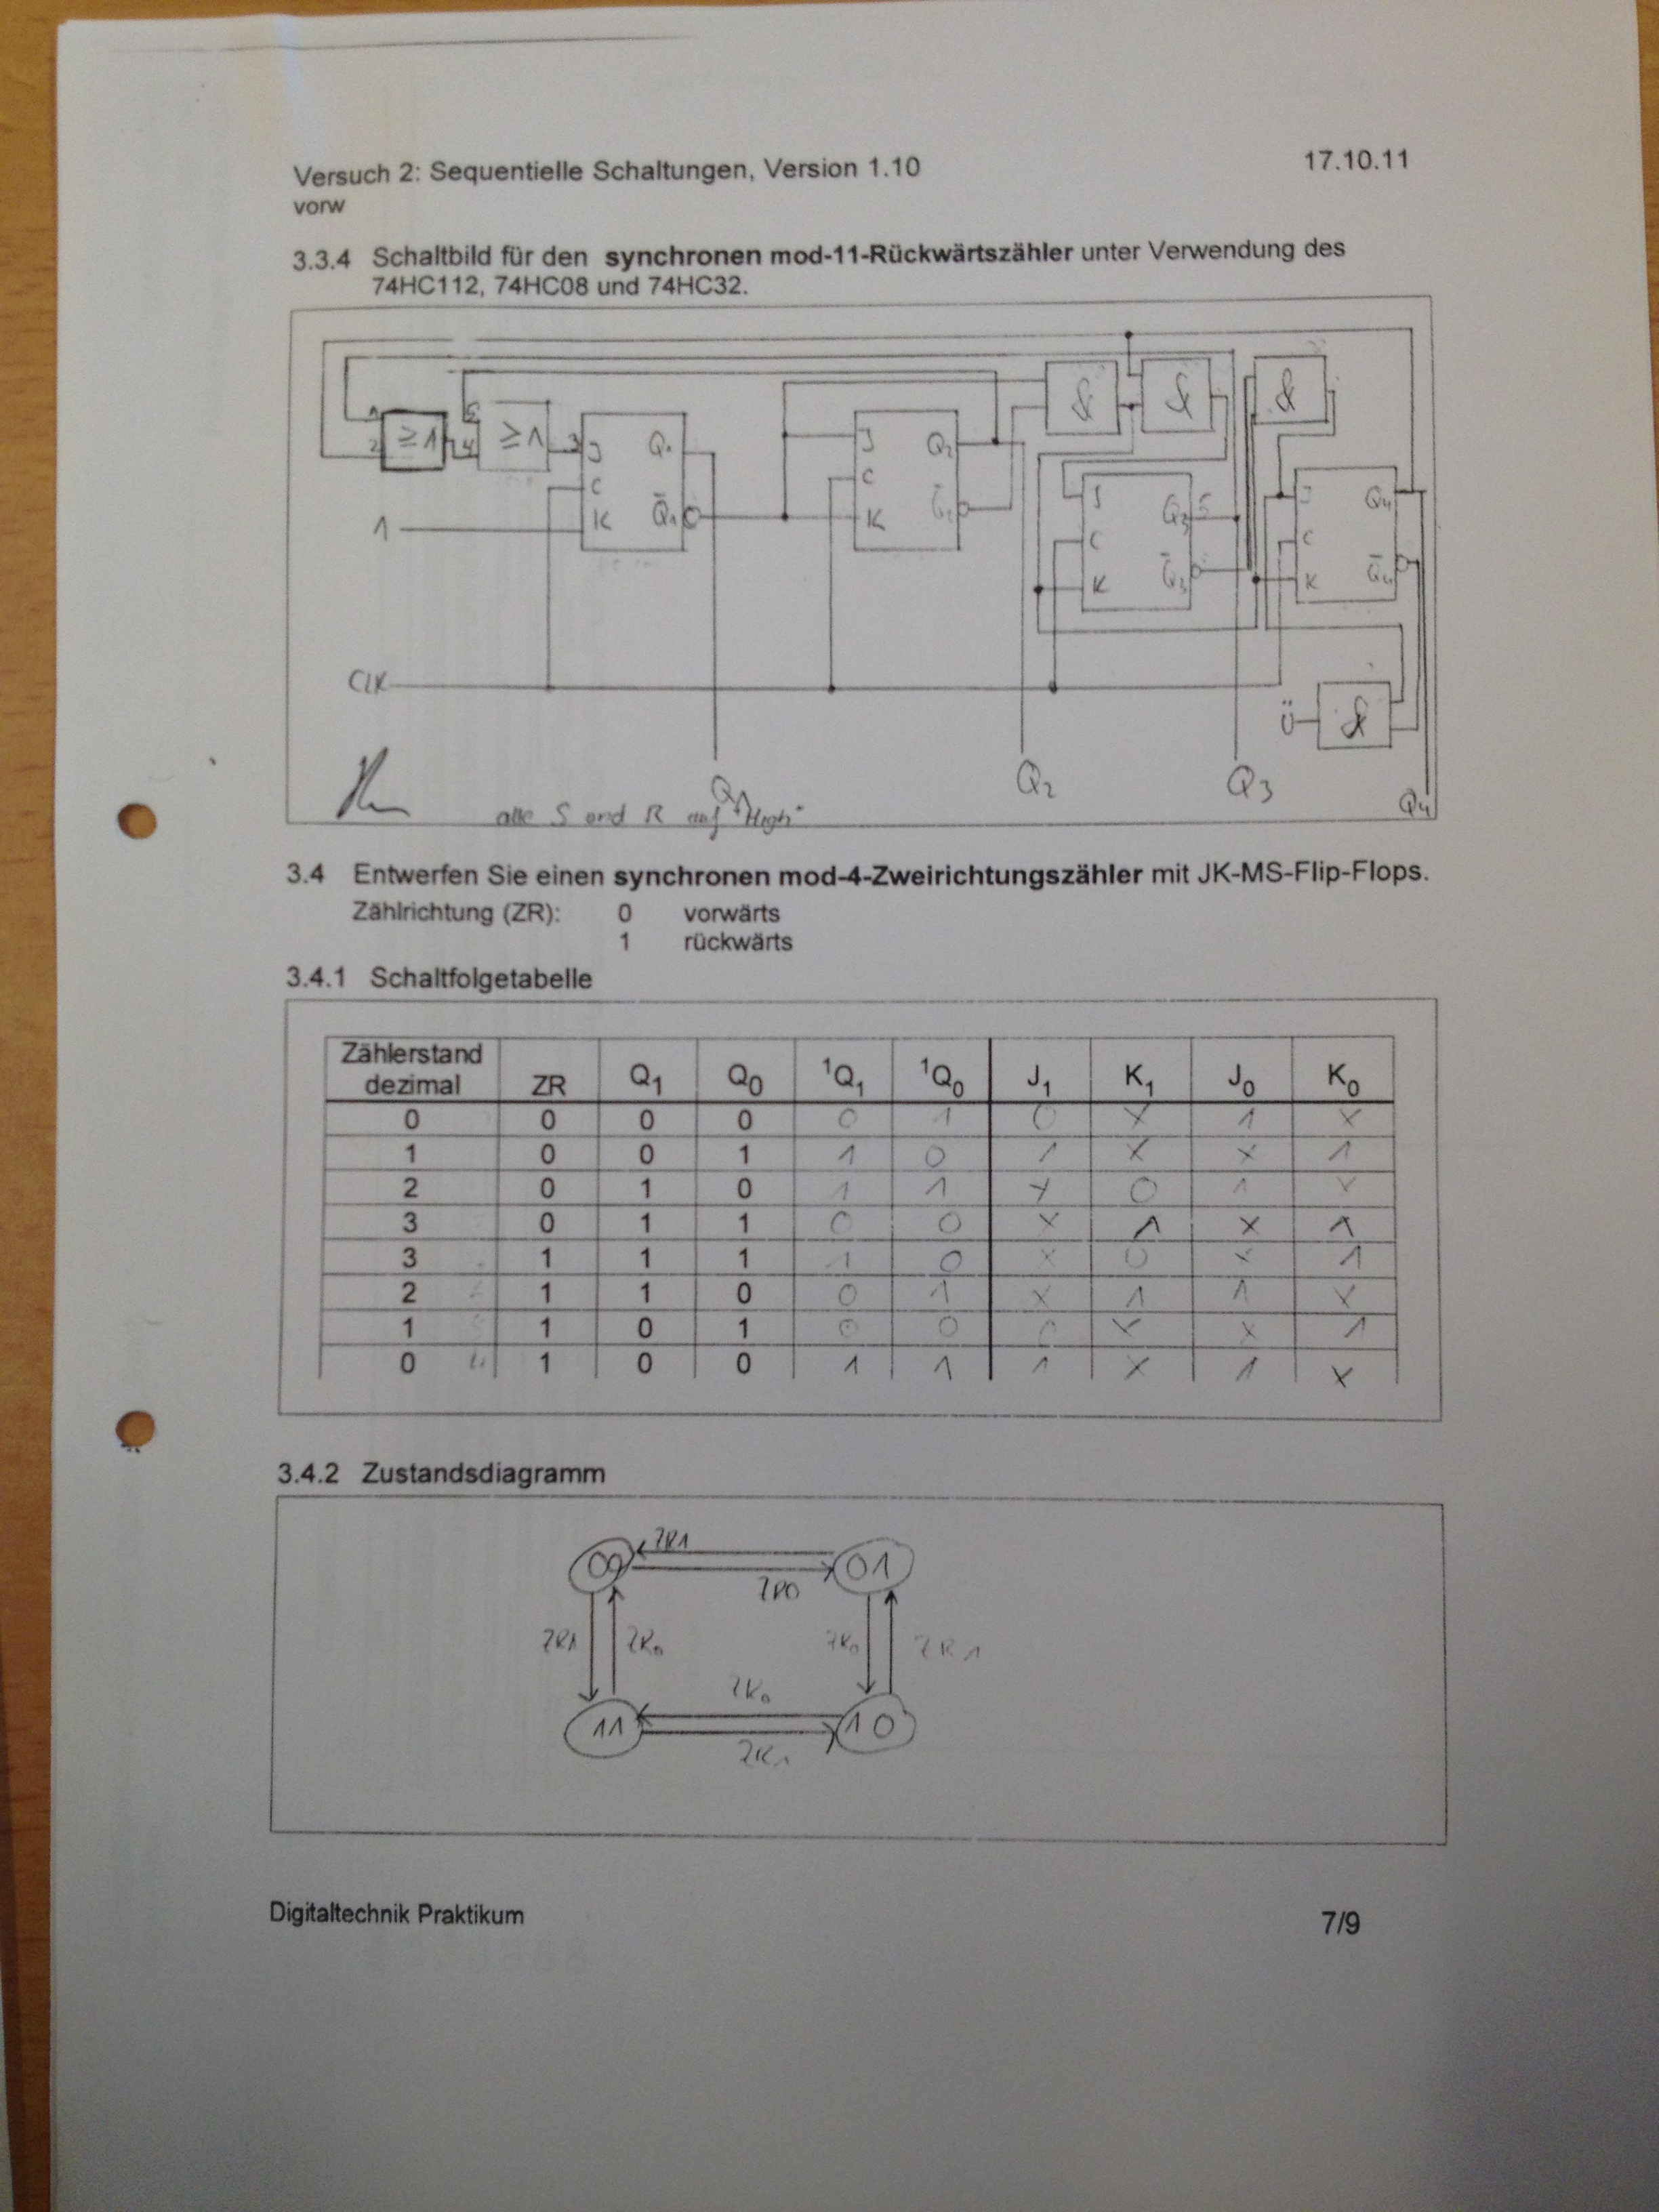 Versuch 2: Sequentielle Schaltungen, Version 1.10 17.10.11
vorw
3.3.4 Schaltbild für den synchronen mod-11-Rückwärtszähler unter Verwendung des
74HC112, 74HC08 und 74HC32.
& & &
1 2 ≥1 4 ≥1 3 J Q1 J Q2
C C
K Q̄1 K
J Q3 J Q4
C C
K Q̄3 K Q̄4
1
CLK
Ü &
Q1 Q2 Q3 Q4
alle S und R auf "High"
3.4 Entwerfen Sie einen synchronen mod-4-Zweirichtungszähler mit JK-MS-Flip-Flops.
Zählrichtung (ZR): 0 vorwärts
1 rückwärts
3.4.1 Schaltfolgetabelle
Zählerstand
dezimal ZR Q1 Q0 1Q1 1Q0 J1 K1 J0 K0
0 0 0 0 0 1 0 X 1 X
1 0 0 1 1 0 1 X X 1
2 0 1 0 1 1 X 0 1 X
3 0 1 1 0 0 X 1 X 1
3 1 1 1 1 0 X 0 X 1
2 1 1 0 0 1 X 1 1 X
1 1 0 1 0 0 0 X X 1
0 1 0 0 1 1 1 X 1 X
3.4.2 Zustandsdiagramm
ZR1
00 01
ZR0
ZR1 ZR0 ZR0 ZR1
ZR0
11 10
ZR1
Digitaltechnik Praktikum 7/9